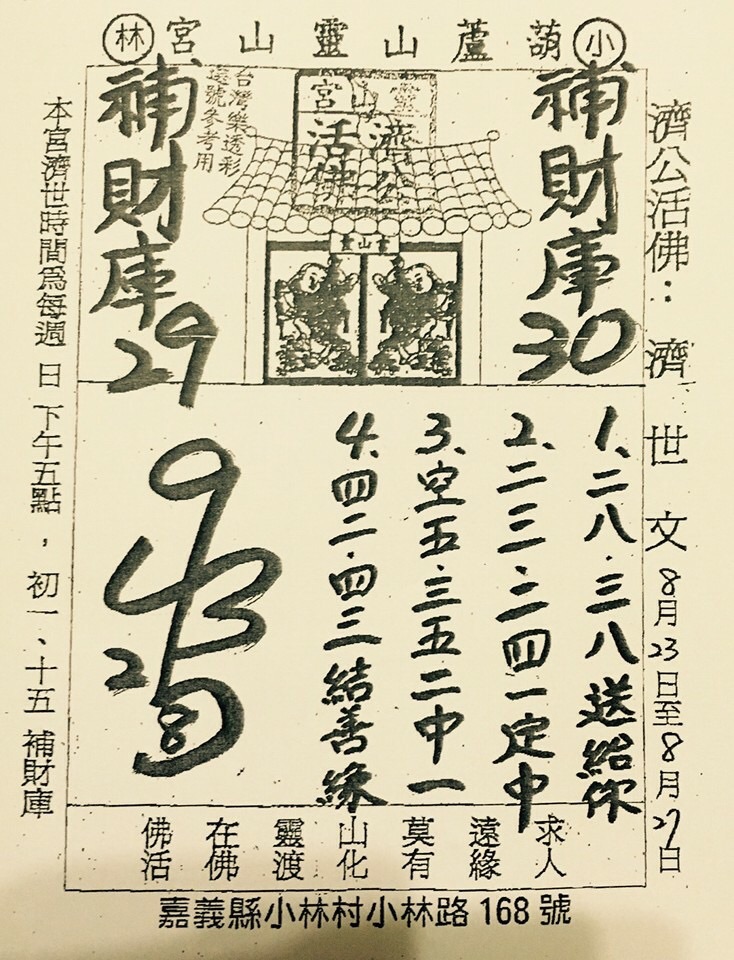 小林 葫蘆山靈山宮
濟公活佛：濟世文 8月23日至8月27日
補財庫
30
靈山宮
濟公
活佛
台灣樂透彩
選號參考用
補財庫
29
1、二八、三八送給你
2、二三、二四一定中
3、空五、三五二中一
4、四二、四三結善緣
求人
遠緣
莫有
山化
靈渡
在佛
佛活
本宮濟世時間為每週日下午五點，初一、十五補財庫
嘉義縣小林村小林路168號